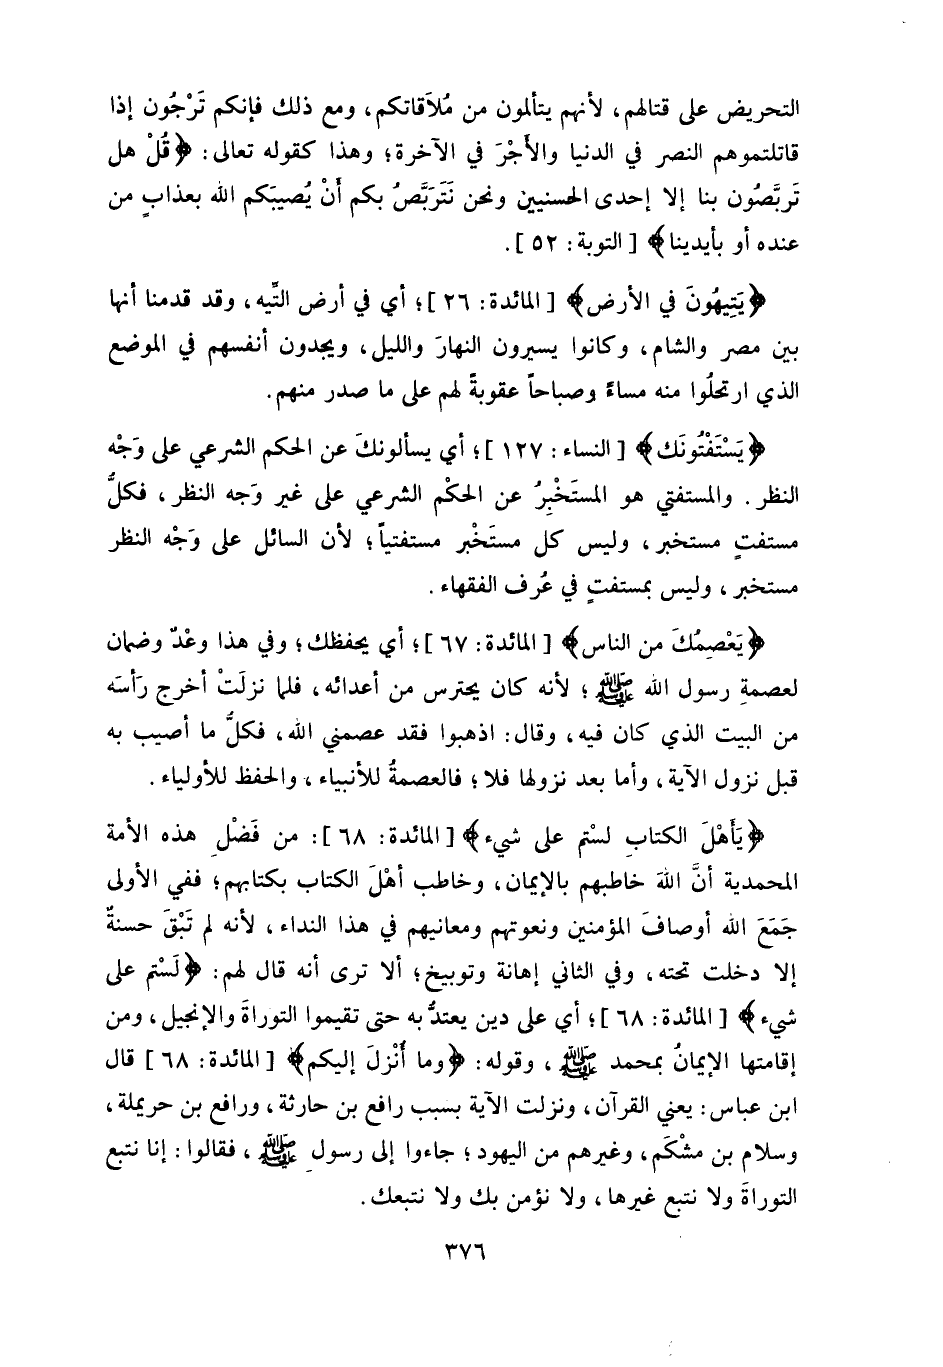 التحريض على قتالهم، لأنهم يتألمون من مُلاَقاتكم، ومع ذلك فإنكم تَرْجُون إذا
قاتلتموهم النصر في الدنيا والأَجْرَ في الآخرة؛ وهذا كقوله تعالى: ﴿قُلْ هل
تَربَّصُون بنا إلا إحدى الحسنيين ونحن نَتَربَّصُ بكم أَنْ يُصيبَكم الله بعذابٍ من
عنده أو بأيدينا﴾ [ التوبة: ٥٢ ].
﴿يَتِيهُونَ في الأرض﴾ [ المائدة: ٢٦ ]؛ أي في أرض التِّيه، وقد قدمنا أنها
بين مصر والشام، وكانوا يسيرون النهارَ والليل، ويجدون أنفسهم في الموضع
الذي ارتحلُوا منه مساءً وصباحاً عقوبةً لهم على ما صدر منهم.
﴿يَسْتَفْتُونَك﴾ [ النساء: ١٢٧ ]؛ أي يسألونكَ عن الحكم الشرعي على وَجْه
النظر. والمستفتي هو المستَخْبِرُ عن الحكْم الشرعي على غير وَجه النظر، فكلُّ
مستفتٍ مستخبر، وليس كل مستَخْبر مستفتياً؛ لأن السائل على وَجْه النظر
مستخبر، وليس بمستفتٍ في عُرف الفقهاء.
﴿يَعْصِمُكَ من الناس﴾ [ المائدة: ٦٧ ]؛ أي يحفظك؛ وفي هذا وعْدٌ وضمان
لعصمةِ رسول الله ﷺ؛ لأنه كان يحترس من أعدائه، فلما نزلَتْ أخرج رَأسَه
من البيت الذي كان فيه، وقال: اذهبوا فقد عصمني الله، فكلُّ ما أصيب به
قبل نزول الآية، وأما بعد نزولها فلا؛ فالعصمةُ للأنبياء، والحفظ للأولياء.
﴿يَأَهْلَ الكتابِ لسْتم على شيء﴾ [ المائدة: ٦٨ ]: من فَضْلِ هذه الأمة
المحمدية أنَّ اللهَ خاطبهم بالإيمان، وخاطب أهْلَ الكتاب بكتابهم؛ ففي الأولى
جَمَعَ الله أوصافَ المؤمنين ونعوتهم ومعانيهم في هذا النداء، لأنه لم تَبْقَ حسنةٌ
إلا دخلت تحته، وفي الثاني إهانة وتوبيخ؛ ألا ترى أنه قال لهم: ﴿لَسْتم على
شيء﴾ [ المائدة: ٦٨ ]؛ أي على دين يعتدُّ به حتى تقيموا التوراةَ والإنجيل، ومن
إقامتها الإيمانُ بمحمد ﷺ، وقوله: ﴿وما أُنْزلَ إليكم﴾ [ المائدة: ٦٨ ] قال
ابن عباس: يعني القرآن، ونزلت الآية بسبب رافع بن حارثة، ورافع بن حريملة،
وسلام بن مشْكَم، وغيرهم من اليهود؛ جاءوا إلى رسولِ ﷺ، فقالوا: إنا نتبع
التوراةَ ولا نتبع غيرها، ولا نؤمن بك ولا نتبعك.
٣٧٦